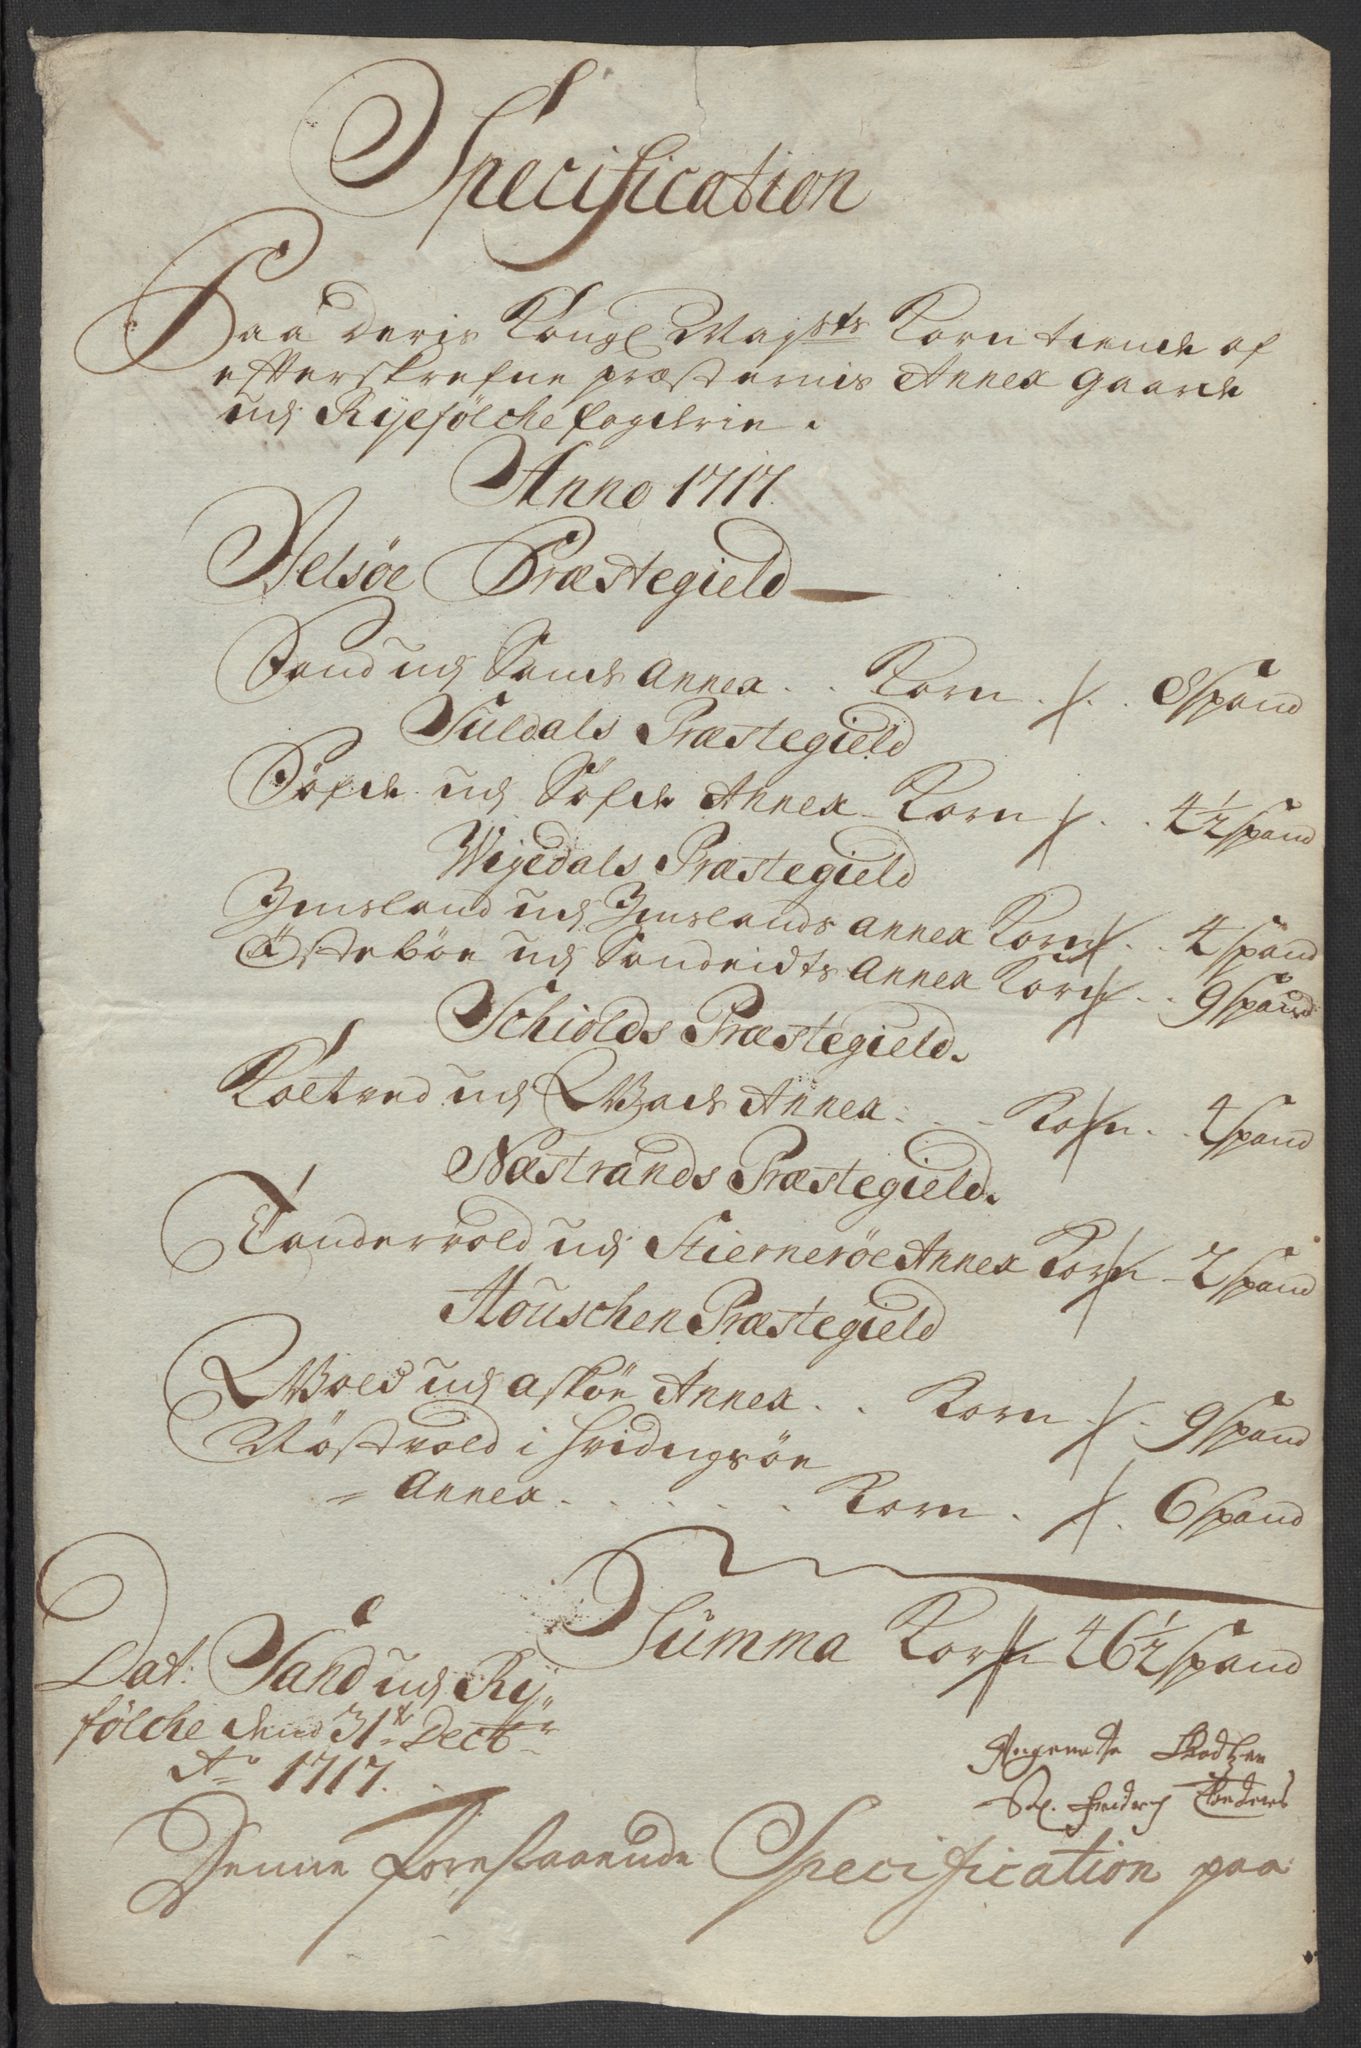 Specification
Paa Deris Kongl Mayst:s Korn tiende af
effterskrefne præsternis Annex gaarde
udj Ryefölche fogderie.
Anno 1717.
Jelsöe Præstegield
Sand udj Sands Annex . . Korn . . . 8 Spand
Suldals Præstegield
Söfde udj Söfde Annex Korn . . 4½ Spand
Wijedals Præstegield
Imsland udj Imslands Annex Korn . . 4 Spand
Östebön udj Sandeidts Annex Korn . . 9 Spand
Schiolds Præstegield.
Koltved udj Wads Annex . . . Korn . . 4 Spand
Næstrands Præstegield.
Tandervold udj Stierneröe Annex Korn 2 Spand
Houschen Præstegield
Wold udj Askön Annex . . Korn . . 9 Spand
Nöstvold i Hvidingsön
= Annex . . . . . Korn . . 6 Spand
Summa Korn 46½ Spand
Dat: Sand udj Ry,,
fölche dend 31te Dectbr
Ao 1717.
Sl. Friderich
Denne Forestaaende Specification paa